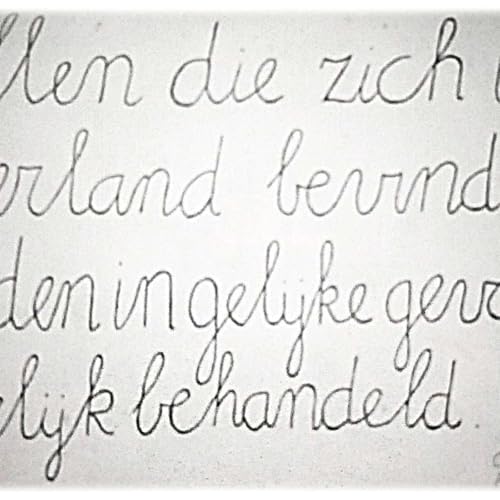 llen die zich
erland bevind
den in gelijke gev
elijk behandeld.